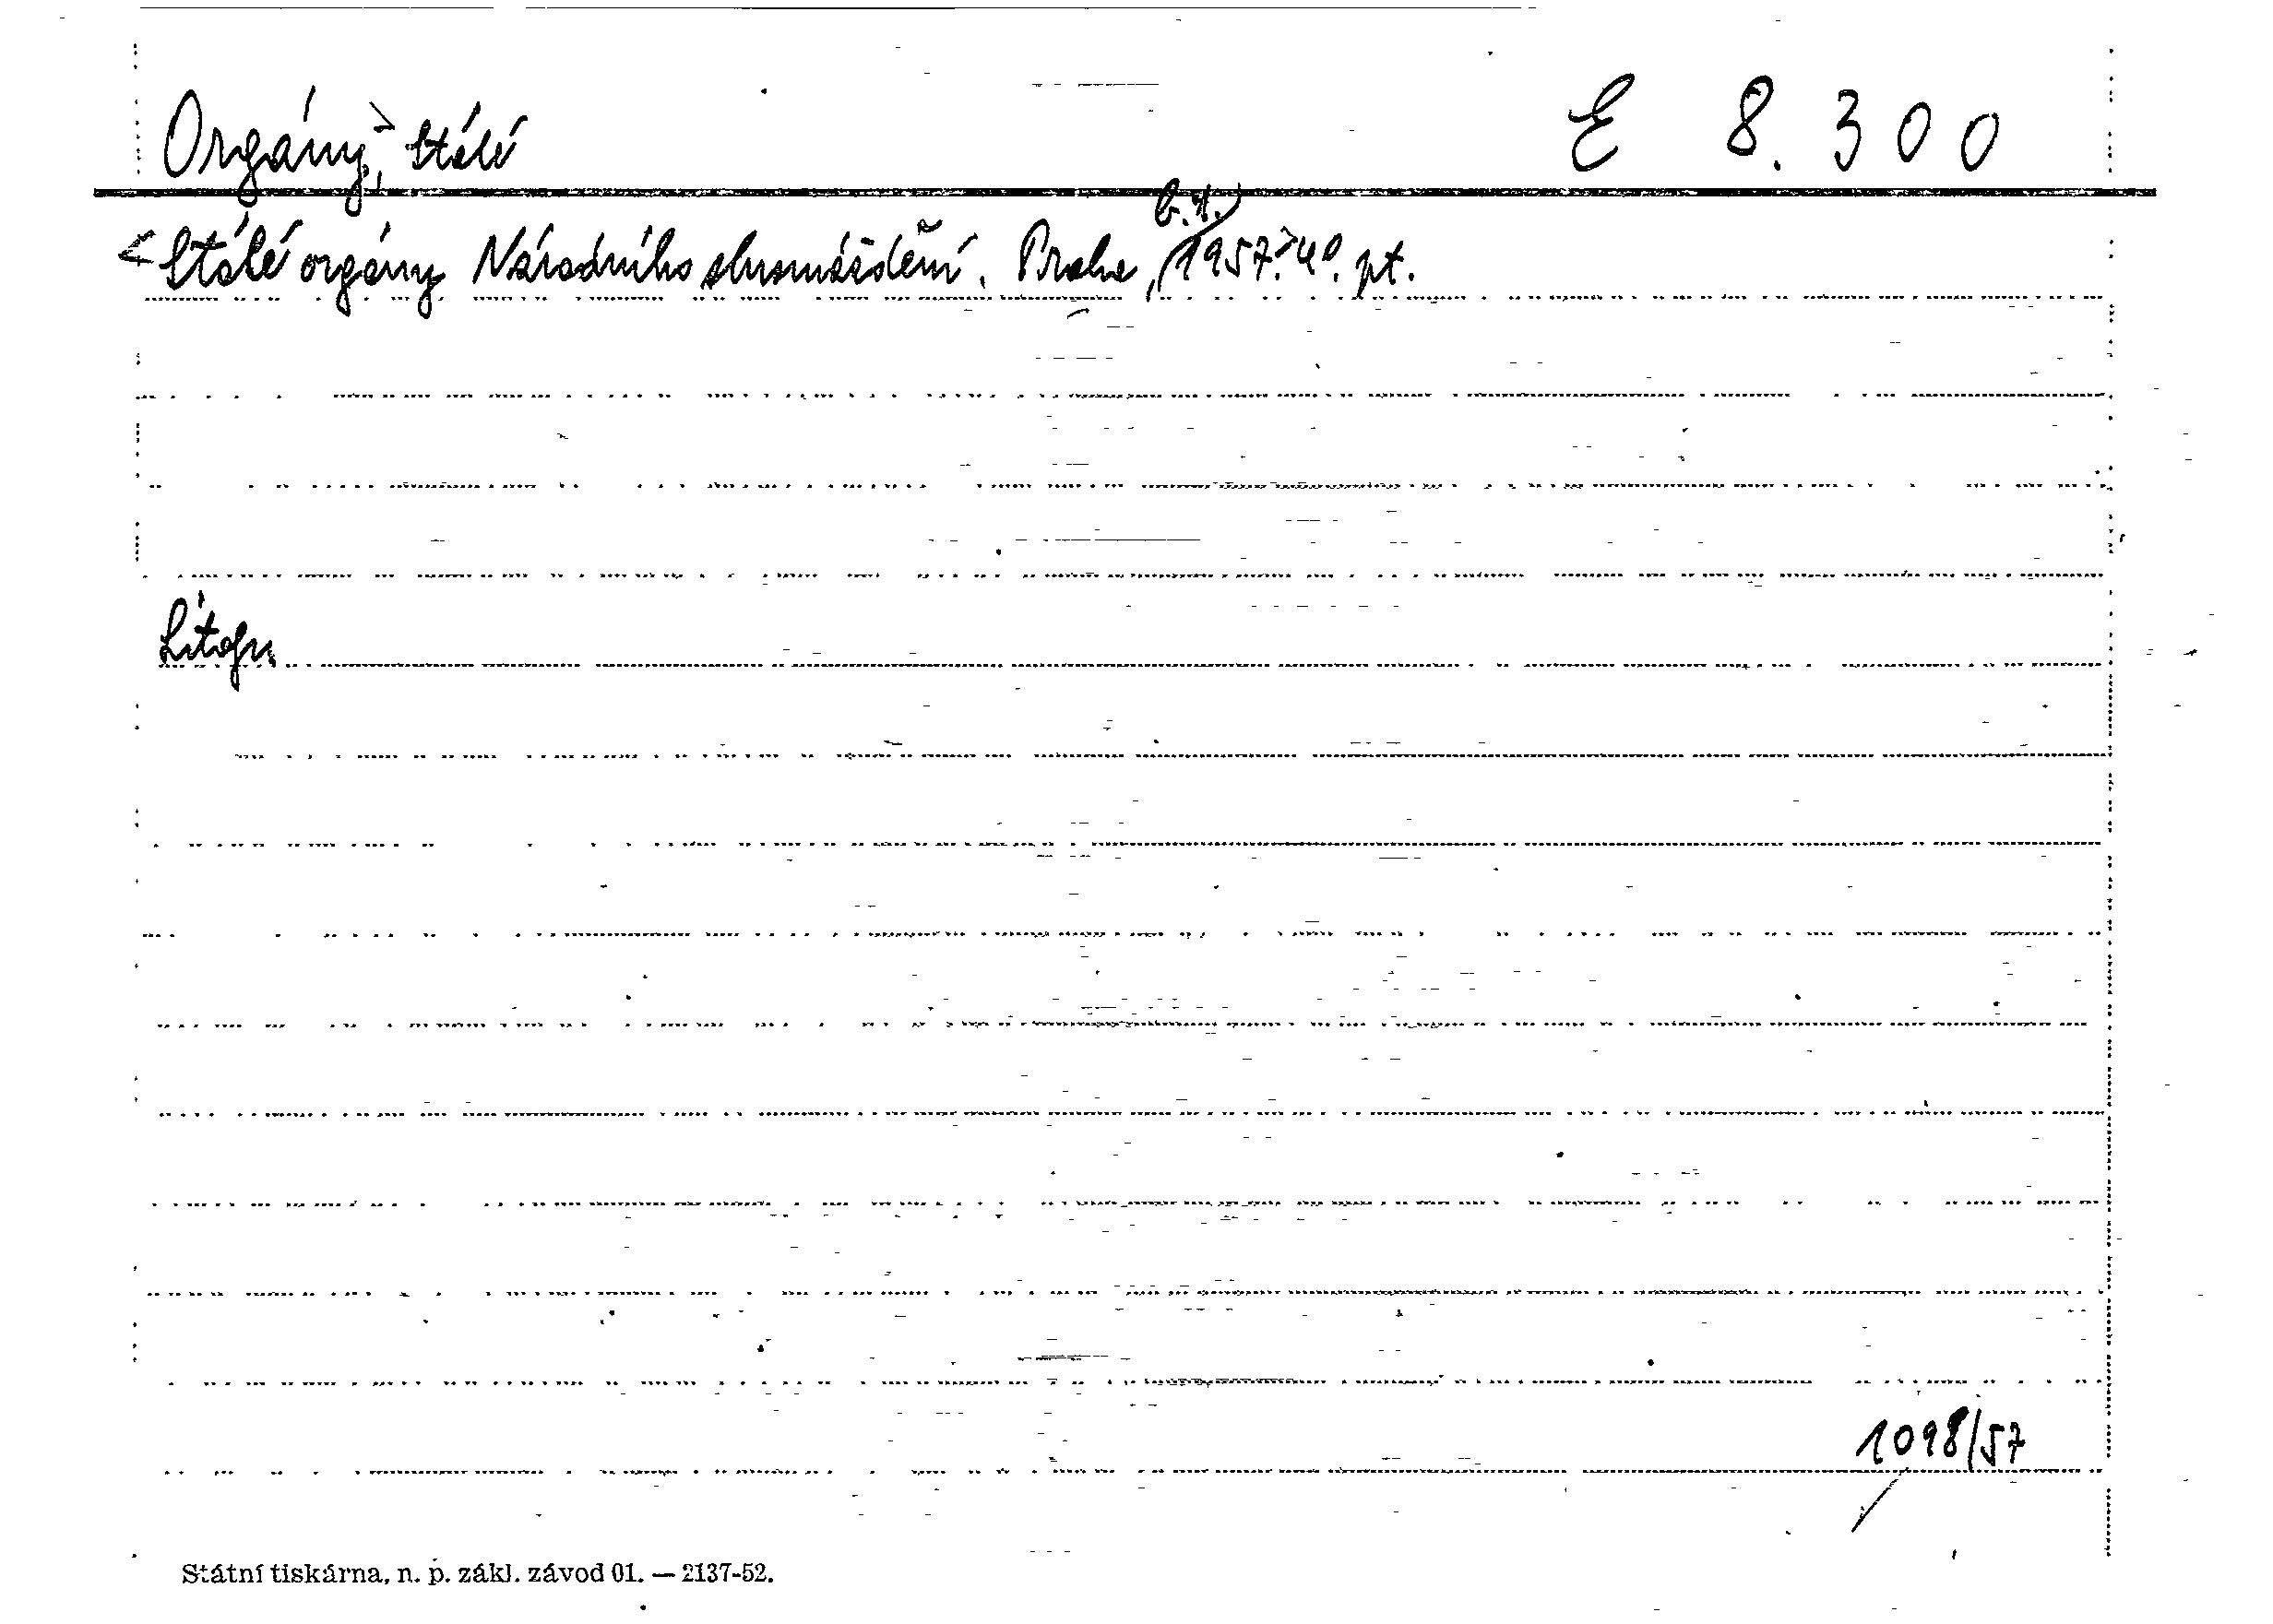 Orgány, stálé E 8.300
b.n.
<Stálé orgány Národního shromáždění. Praha, 1957. 4°. pt.
Litogr.
1098/57
Státní tiskárna, n. p. zákl. závod 01. — 2137-52.